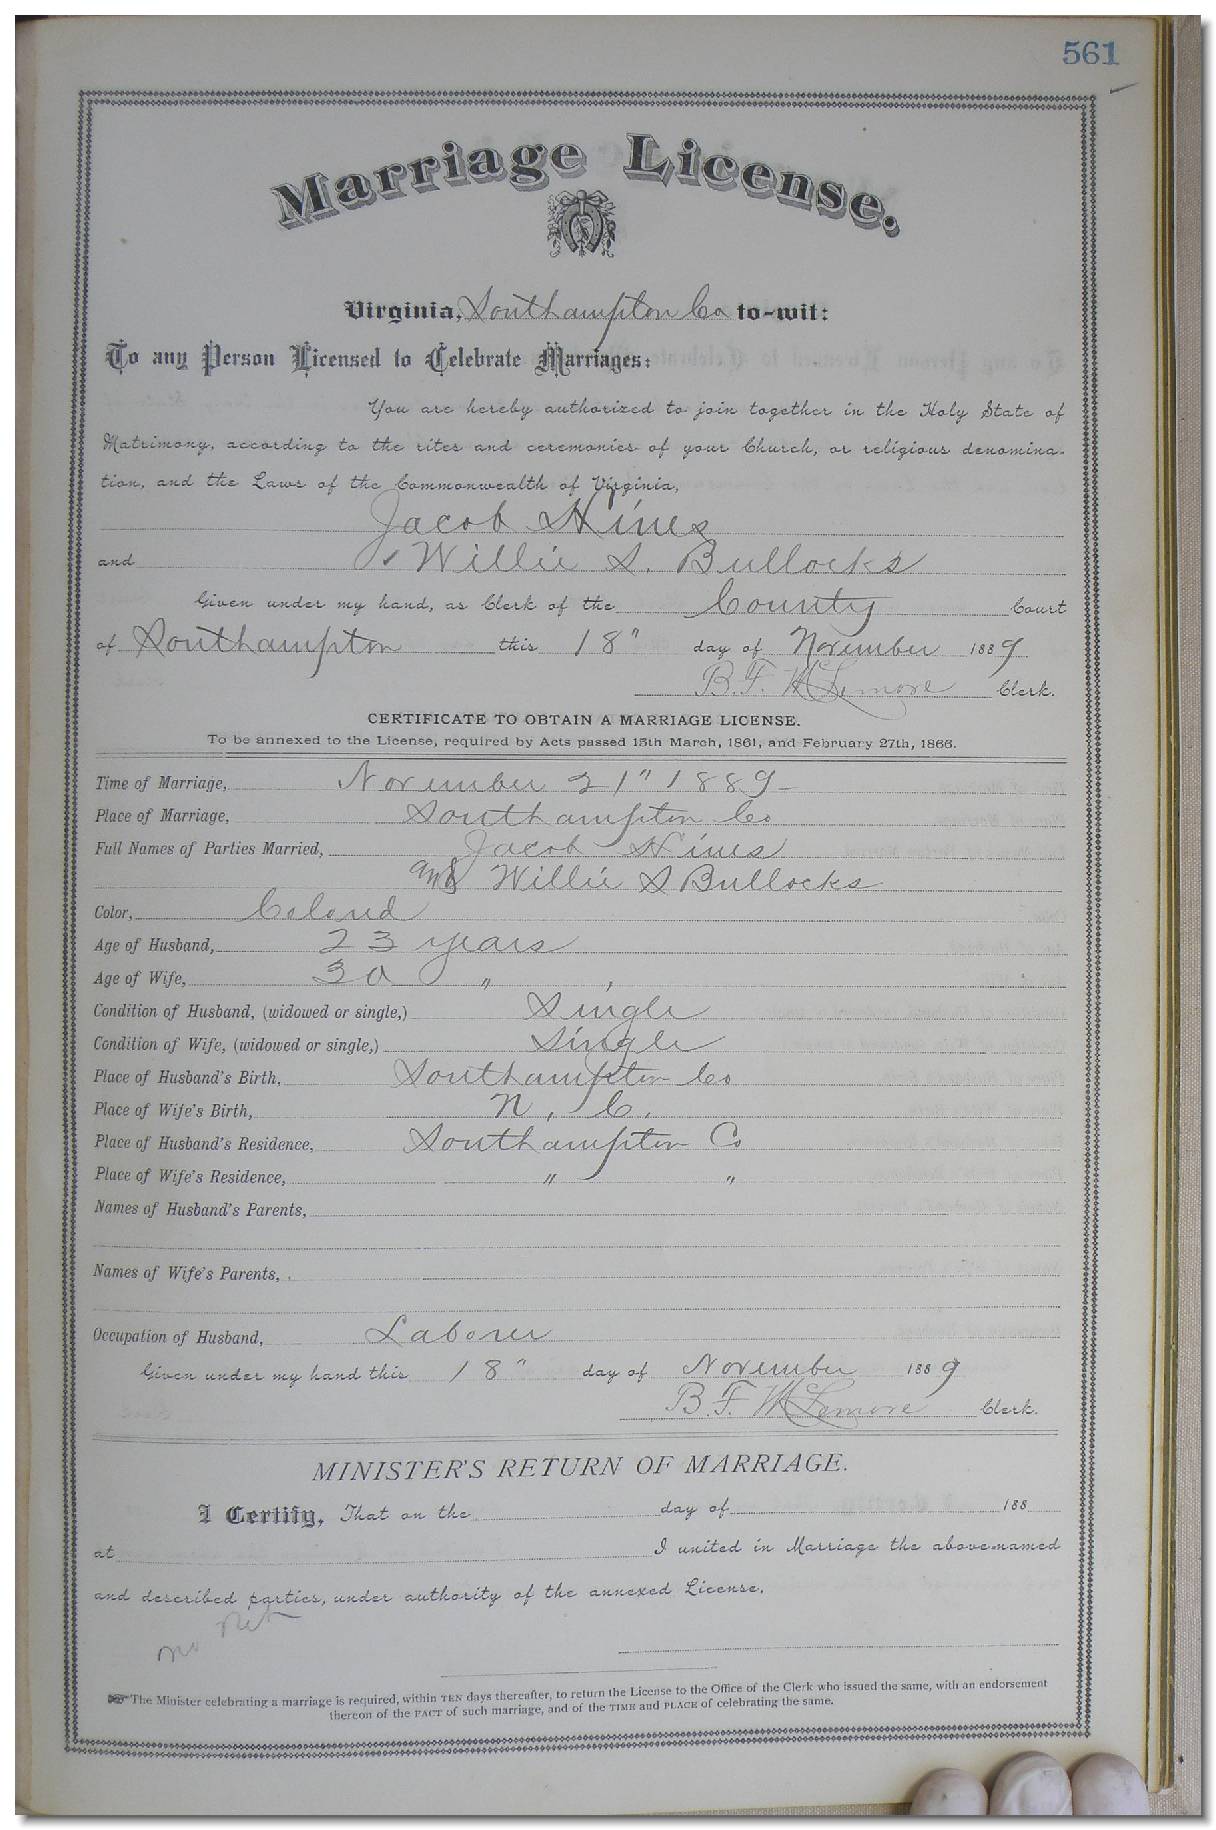 561
Marriage License.
Virginia, Southampton Co to-wit:
To any Person Licensed to Celebrate Marriages:
You are hereby authorized to join together in the Holy State of
Matrimony, according to the rites and ceremonies of your Church, or religious denomina-
tion, and the Laws of the Commonwealth of Virginia,
Jacob Hines
and Willie S. Bullocks
Given under my hand, as Clerk of the County Court
of Southampton this 18" day of November 1889
B. F. McLemore Clerk.
CERTIFICATE TO OBTAIN A MARRIAGE LICENSE.
To be annexed to the License, required by Acts passed 15th March, 1861, and February 27th, 1866.
Time of Marriage, November 21" 1889-
Place of Marriage, Southampton Co
Full Names of Parties Married, Jacob Hines
and Willie S Bullocks
Color, Colored
Age of Husband, 23 years
Age of Wife, 30 "
Condition of Husband, (widowed or single,) Single
Condition of Wife, (widowed or single,) Single
Place of Husband's Birth, Southampton Co
Place of Wife's Birth, N. C.
Place of Husband's Residence, Southampton Co
Place of Wife's Residence, " "
Names of Husband's Parents,
Names of Wife's Parents,
Occupation of Husband, Laborer
Given under my hand this 18" day of November 1889
B. F. McLemore Clerk.
MINISTER'S RETURN OF MARRIAGE.
I Certify, That on the day of 188
at I united in Marriage the above-named
and described parties, under authority of the annexed License.
no Ret
The Minister celebrating a marriage is required, within TEN days thereafter, to return the License to the Office of the Clerk who issued the same, with an endorsement
thereon of the FACT of such marriage, and of the TIME and PLACE of celebrating the same.